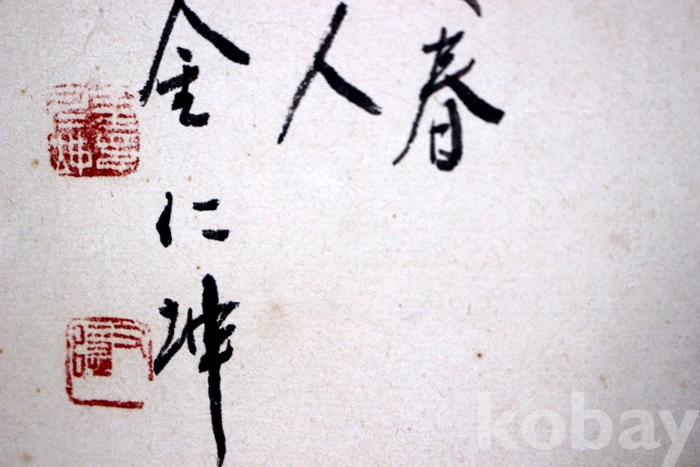 春
人
金仁坤
kobay